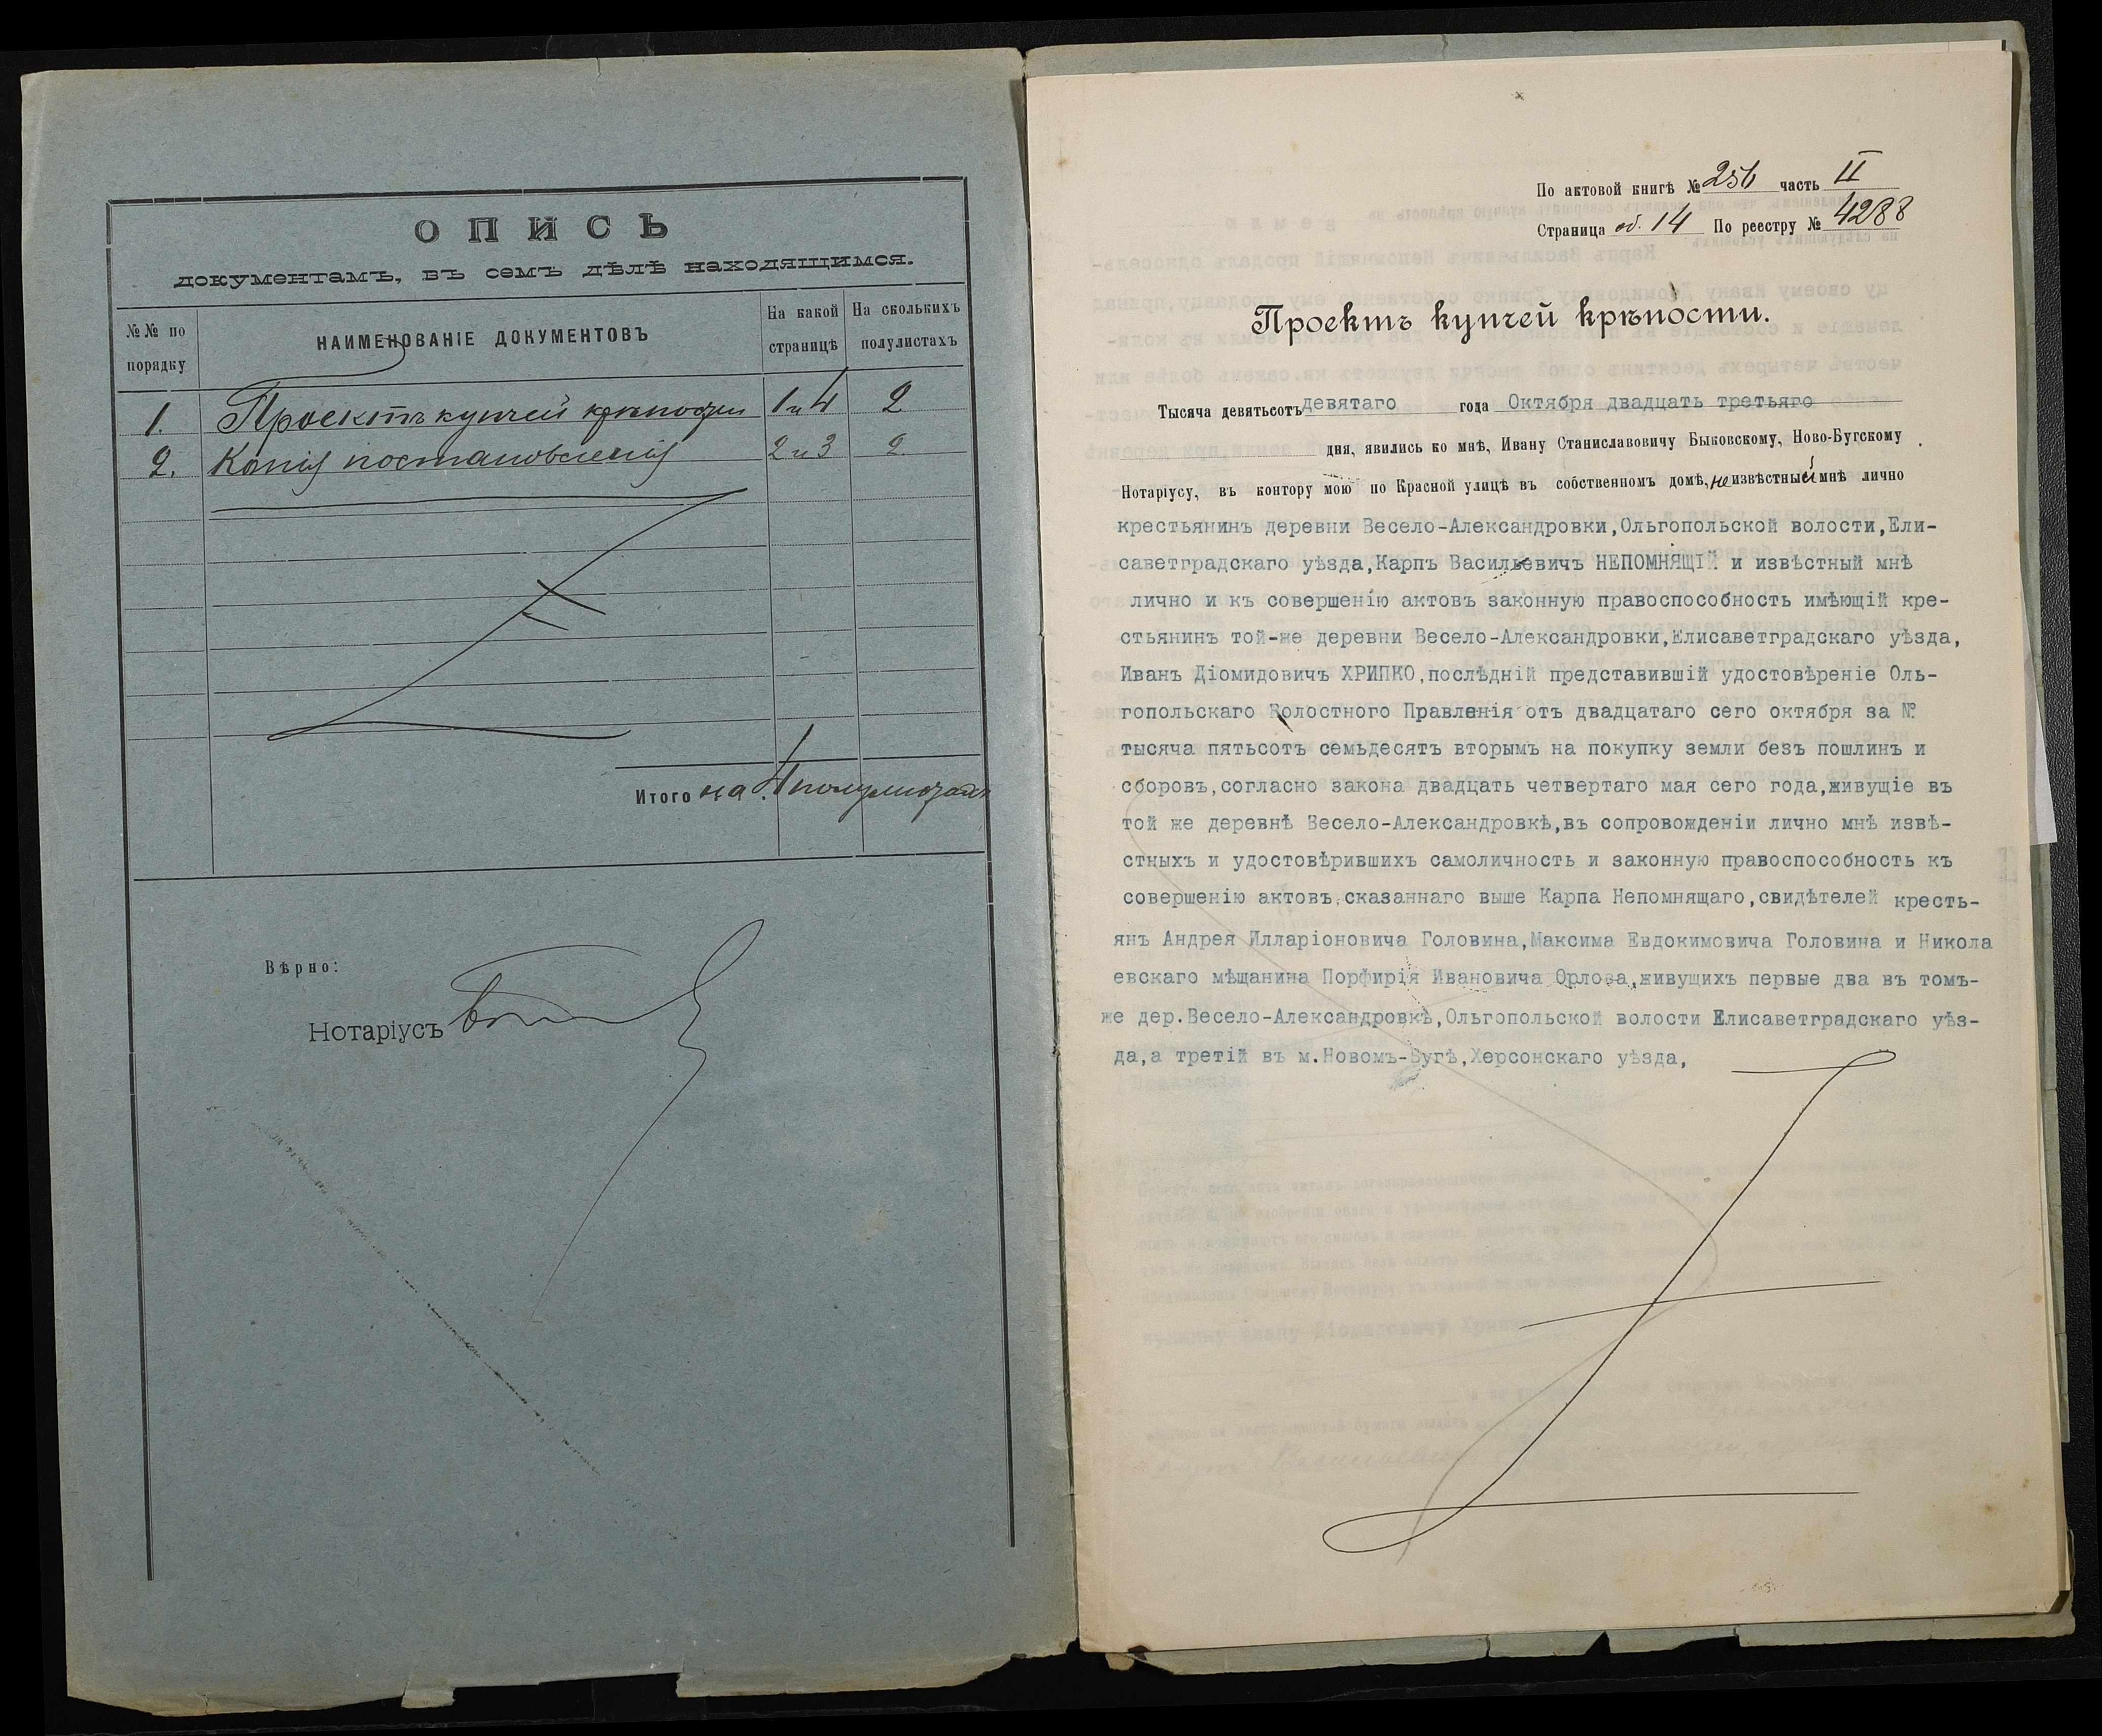 ОПИСЬ
документамъ, въ семъ дѣлѣ находящимся.
№№ по порядку
НАИМЕНОВАНІЕ ДОКУМЕНТОВЪ
На какой страницѣ
На сколькихъ полулистахъ
1. Проектъ купчей крѣпости 1 и 4 2
2. Копія постановленія 2 и 3 2
Итого на 4 полулистахъ
Вѣрно:
Нотаріусъ
По актовой книгѣ № 256 часть II
Страница об. 14 По реестру № 4288
Проектъ купчей крѣпости.
Тысяча девятьсотъ девятаго года Октября двадцать третьяго
дня, явились ко мнѣ, Ивану Станиславовичу Быковскому, Ново-Бугскому
Нотаріусу, въ контору мою по Красной улицѣ въ собственномъ домѣ, неизвѣстный мнѣ лично
крестьянинъ деревни Весело-Александровки,Ольгопольской волости,Ели-
саветградскаго уѣзда,Карпъ Васильевичъ НЕПОМНЯЩІЙ и извѣстный мнѣ
лично и къ совершенію актовъ законную правоспособность имѣющій кре-
стьянинъ той-же деревни Весело-Александровки,Елисаветградскаго уѣзда,
Иванъ Діомидовичъ ХРИПКО,послѣдній представившій удостовѣреніе Оль-
гопольскаго Волостного Правленія отъ двадцатаго сего октября за №
тысяча пятьсотъ семьдесятъ вторымъ на покупку земли безъ пошлинъ и
сборовъ,согласно закона двадцать четвертаго мая сего года,живущіе въ
той же деревнѣ Весело-Александровкѣ,въ сопровожденіи лично мнѣ извѣ-
стныхъ и удостовѣрившихъ самоличность и законную правоспособность къ
совершенію актовъ,сказаннаго выше Карпа Непомнящаго,свидѣтелей кресть-
янъ Андрея Илларіоновича Головина,Максима Евдокимовича Головина и Никола
евскаго мѣщанина Порфирія Ивановича Орлова,живущихъ первые два въ томъ-
же дер.Весело-Александровкѣ,Ольгопольской волости Елисаветградскаго уѣз-
да,а третій въ м.Новомъ-Бугѣ,Херсонскаго уѣзда,